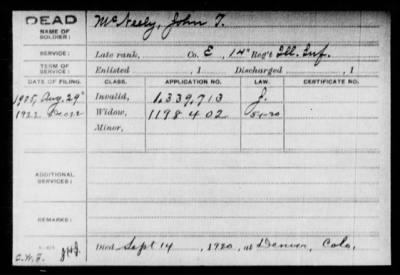 DEAD
NAME OF SOLDIER: McNeely, John T.
SERVICE: Late rank, Co. E, 14" Reg't Ill. Inf.
TERM OF SERVICE: Enlisted , 1 Discharged , 1
DATE OF FILING. CLASS. APPLICATION NO. LAW. CERTIFICATE NO.
Aug. 29" Invalid, 1,339,713 J.
1922 Widow, 1198402
Minor,
ADDITIONAL SERVICES:
REMARKS:
Died Sept 14, 1920, at Denver, Colo,